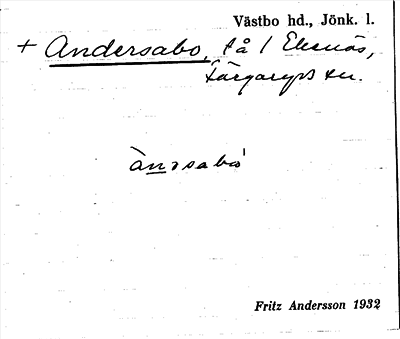 Västbo hd., Jönk. l.
+ Andersabo, på / Ekenäs,
Färgaryds sn.
ànəsabó
Fritz Andersson 1932